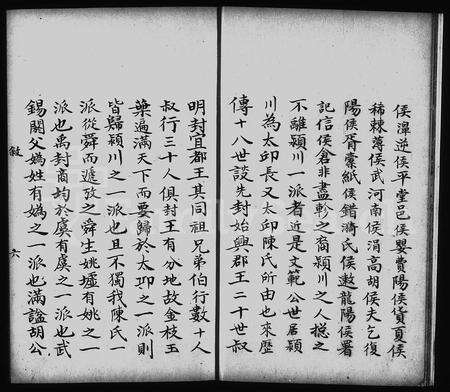 侯渾逆侯平堂邑侯嬰費陽侯賀夏侯
稀棘蒲侯武河南侯涓高胡侯夫乞復
陽侯胥槖紙侯錯漪氏侯遬龍陽侯署
記信侯倉非盡軫之裔潁川之人揔之
不離潁川一派者近是文範公世居潁
川為太邱長又太邱陳氏所由也來歷
傳十八世談先封始興郡王二十世叔
明封宜都王其同祖兄弟伯行數十人
叔行三十人俱封王有分地故金枝玉
葉遍滿天下而要歸於太邱之一派則
皆歸潁川之一派也且不獨我陳氏一
派從舜而遞孜之舜生姚墟有姚之一
派也禹封商均於虞有虞之一派也武
錫閼父媯姓有媯之一派也滿諡胡公
敍
六